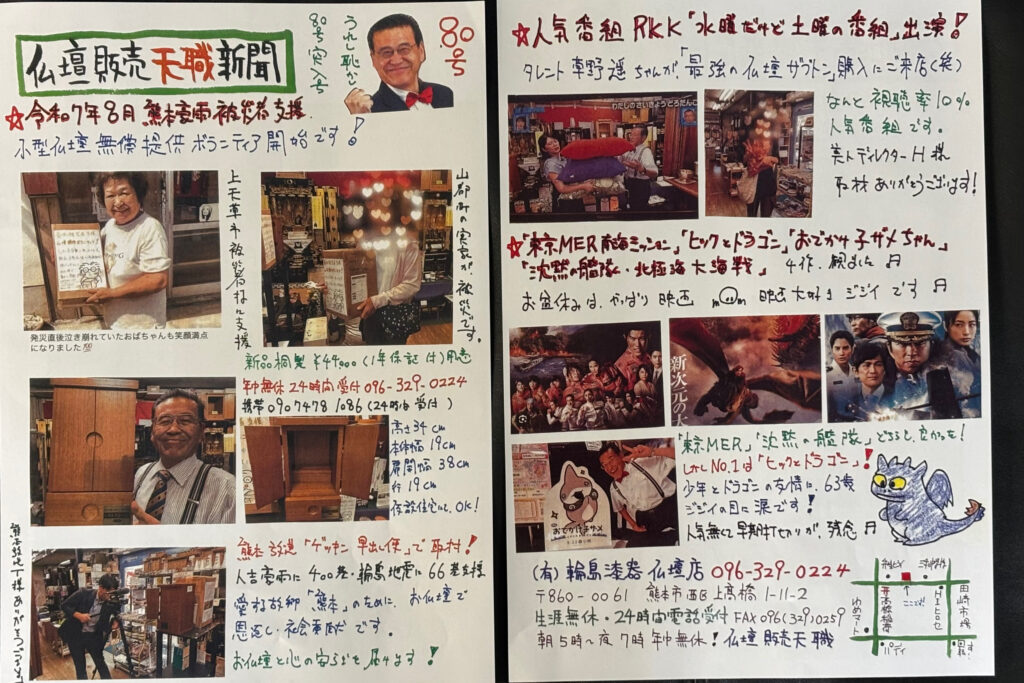 仏壇販売天職新聞
80号突入号
うれし恥ずかし
80号
☆令和7年8月 熊本豪雨被災者支援
小型仏壇無償提供ボランティア開始です!
上天草市被災者様に支援
山都町の実家が被災です。
発災直後泣き崩れていたおばちゃんも笑顔満点
になりました💯
新品桐製 ¥44,000 (1年保証付)用意
年中無休24時間受付 096-329-0224
携帯 090 7478 1086 (24時間受付)
高さ34cm
本体幅19cm
扉開幅38cm
奥行19cm
仮設住宅にOK!
熊本放送「ゲツキン早出し便」で取材!
人吉豪雨に400基・輪島地震に66基支援
愛する故郷「熊本」のために、お仏壇で
恩返し・社会貢献です。
お仏壇と心の安らぎを届けます!
☆人気番組RKK「水曜だけど土曜の番組」出演!
タレント草野遥ちゃんが「最強の仏壇ザブトン」購入にご来店(笑)
わたしのさいきょうどろだんご
なんと視聴率10%
人気番組です。
美人ディレクターH様
取材ありがとうございます!
☆「東京MER南海ミッション」「ヒックとドラゴン」「おでかけ子ザメちゃん」
「沈黙の艦隊・北極海大海戦」 4作、観ました♬
お盆休みは、やっぱり映画 映画大好きジジイです♬
新次元の
おでかけ子ザメ
「東京MER」「沈黙の艦隊」どちらも、良かった!
しかしNo.1は「ヒックとドラゴン」!
少年とドラゴンの友情に、63歳
ジジイの目に涙です!
人気無くて早期打ち切りが、残念♬
(有)輪島漆器仏壇店 096-329-0224
〒860-0061 熊本市西区上高橋1-11-2
生涯無休・24時間電話受付 FAX 096(329)0259
朝5時〜夜7時年中無休!仏壇販売天職
ゆめマート
田崎市場